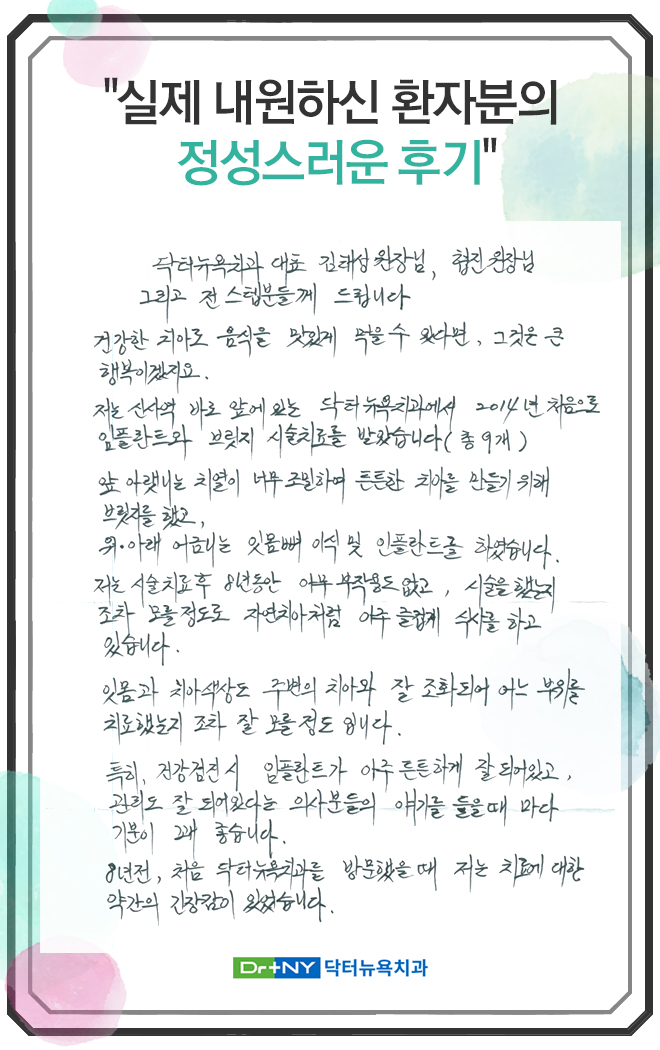 "실제 내원하신 환자분의
정성스러운 후기"
닥터뉴욕치과 대표 김태성 원장님, 협진 원장님
그리고 전 스텝분들께 드립니다
건강한 치아로 음식을 맛있게 먹을 수 있다면, 그것은 큰
행복이겠지요.
저는 신사역 바로 앞에 있는 닥터뉴욕치과에서 2014년 처음으로
임플란트와 브릿지 시술치료를 받았습니다(총 9개)
앞 아랫니는 치열이 너무 조밀하여 튼튼한 치아를 만들기 위해
브릿지를 했고,
위·아래 어금니는 잇몸뼈 이식 및 인플란트를 하였습니다.
저는 시술치료 후 8년동안 아무 부작용도 없고, 시술을 했는지
조차 모를 정도로 자연치아처럼 아주 즐겁게 식사를 하고
있습니다.
잇몸과 치아색상도 주변의 치아와 잘 조화되어 어느 부위를
치료했는지 조차 잘 모를 정도 입니다.
특히, 건강검진시 임플란트가 아주 튼튼하게 잘 되어있고,
관리도 잘 되어있다는 의사분들의 얘기를 들을 때 마다
기분이 꽤 좋습니다.
8년전, 처음 닥터뉴욕치과를 방문했을 때 저는 치료에 대한
약간의 긴장감이 있었습니다.
Dr+NY 닥터뉴욕치과